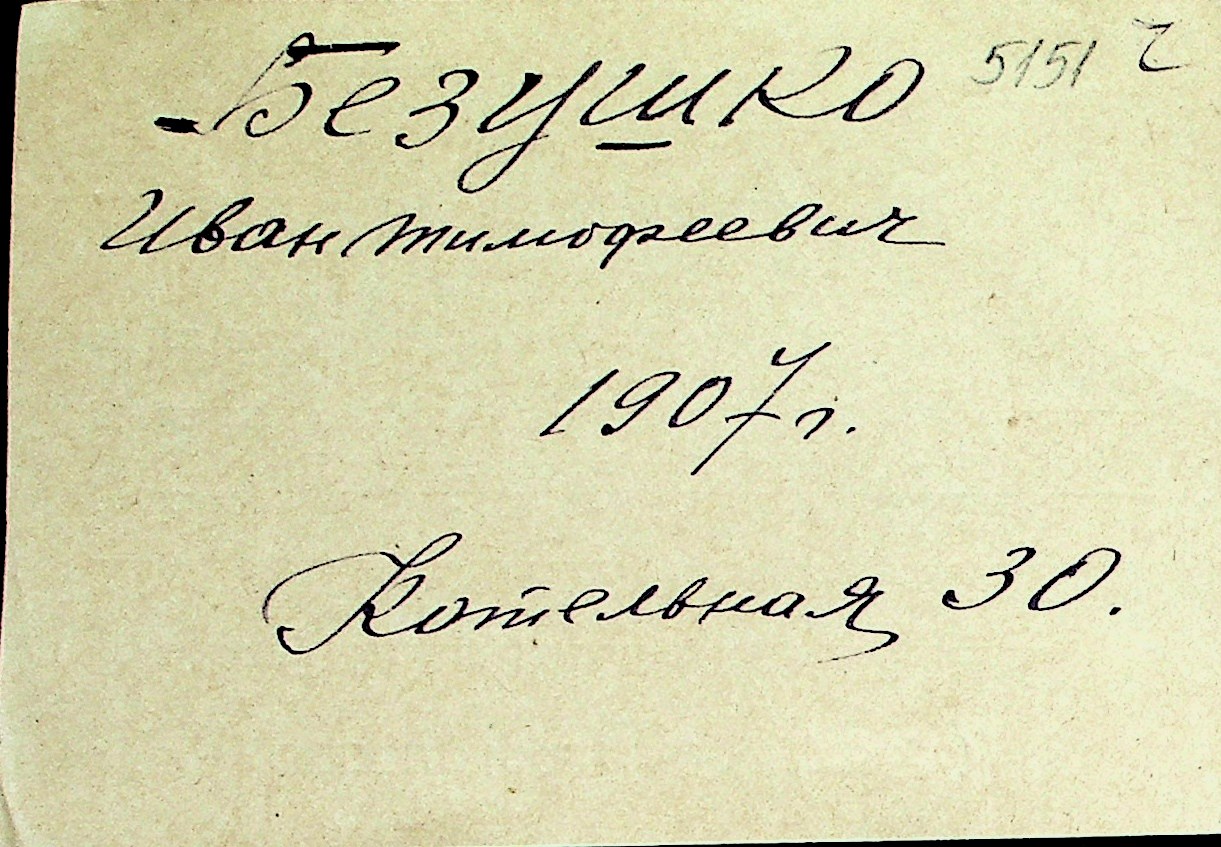 Безушко 5151 ч
Иван Тимофеевич
1907 г.
Котельная 30.